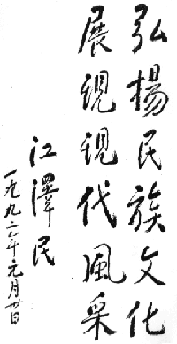 弘揚民族文化
展現現代風采
江澤民
一九九二年元月廿日